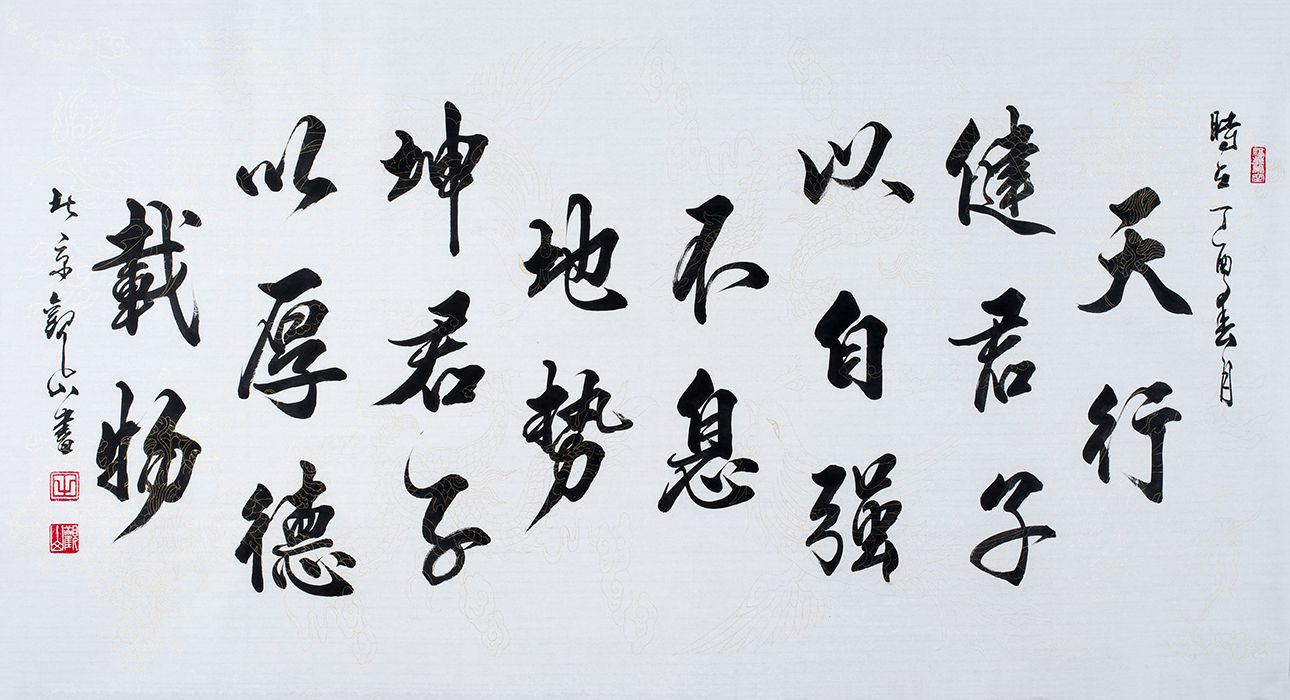 時在丁酉春月
天行
健君子
以自强
不息
地势
坤君子
以厚德
載物
北京觀山書
觀山